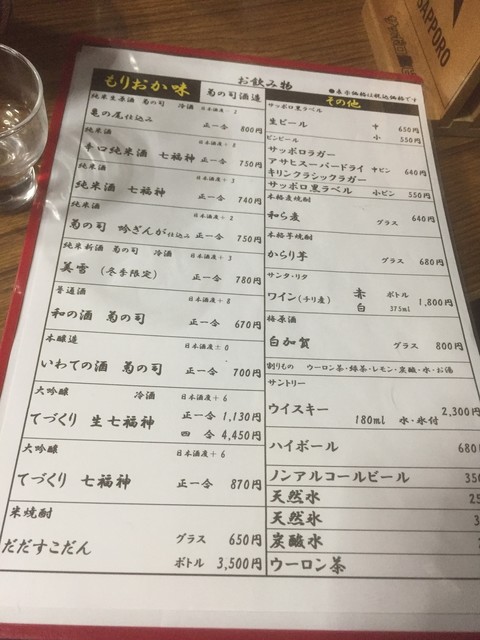 SAPPORO
お飲み物
●表示価格は税込価格です
もりおか味 菊の司酒造
純米生原酒 菊の司 冷酒 日本酒度-2
亀の尾仕込み 正一合 800円
純米酒 日本酒度+8
辛口純米酒 七福神 正一合 750円
純米酒 日本酒度+3
純米酒 七福神 正一合 740円
純米酒 日本酒度+2
菊の司 吟ぎんが仕込み 正一合 750円
純米新酒 菊の司 冷酒 日本酒度+3
美雪 (冬季限定) 正一合 780円
普通酒 日本酒度+8
和の酒 菊の司 正一合 670円
本醸造 日本酒度±0
いわての酒 菊の司 正一合 700円
大吟醸 冷酒 日本酒度+6
てづくり 生七福神 正一合 1,130円
四 合 4,450円
大吟醸 日本酒度+6
てづくり 七福神 正一合 870円
米焼酎
だだすこだん グラス 650円
ボトル 3,500円
その他
サッポロ黒ラベル
生ビール 中 650円
小 550円
ビンビール
サッポロラガー
アサヒスーパードライ 中ビン 640円
キリンクラシックラガー
サッポロ黒ラベル 小ビン 550円
本格麦焼酎
和ら麦 グラス 640円
本格芋焼酎
からり芋 グラス 680円
サンタ・リタ
ワイン(チリ産) 赤 ボトル 1,800円
白 375ml
梅原酒
白加賀 グラス 800円
割りもの ウーロン茶・緑茶・レモン・炭酸・水・お湯
サントリー
ウイスキー 2,300円
180ml 水・氷付
ハイボール 680
ノンアルコールビール 350
天然水 25
天然水 3
炭酸水
ウーロン茶